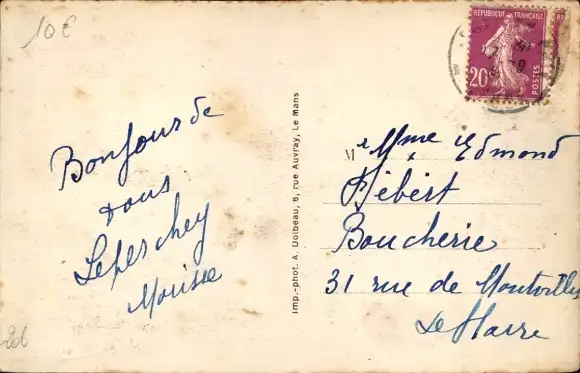 10€
Bonjour de
tous
Leperchey
Mouisse
Imp.-phot. A. Dolbeau, 6, rue Auvray, Le Mans
RÉPUBLIQUE FRANÇAISE
20c
POSTES
M Mme Edmond
Hébért
Boucherie
31 rue de Montvilliers
Le Havre